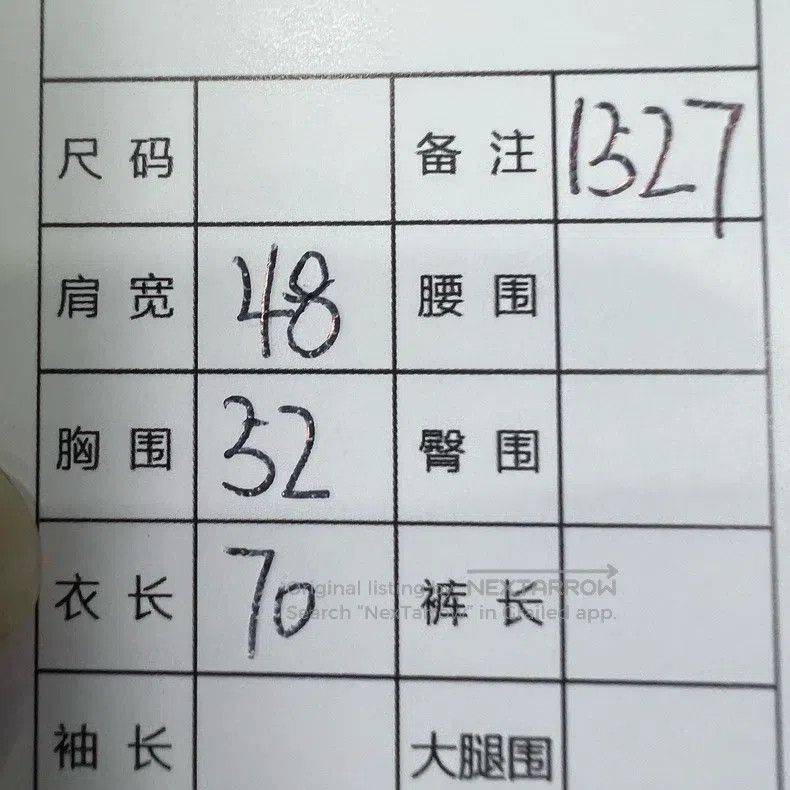 尺码 备注 1527
肩宽 48 腰围
胸围 52 臀围
衣长 70 裤长
Original listing NEXTARROW
Search "NexTarrow" in Grailed app.
袖长 大腿围